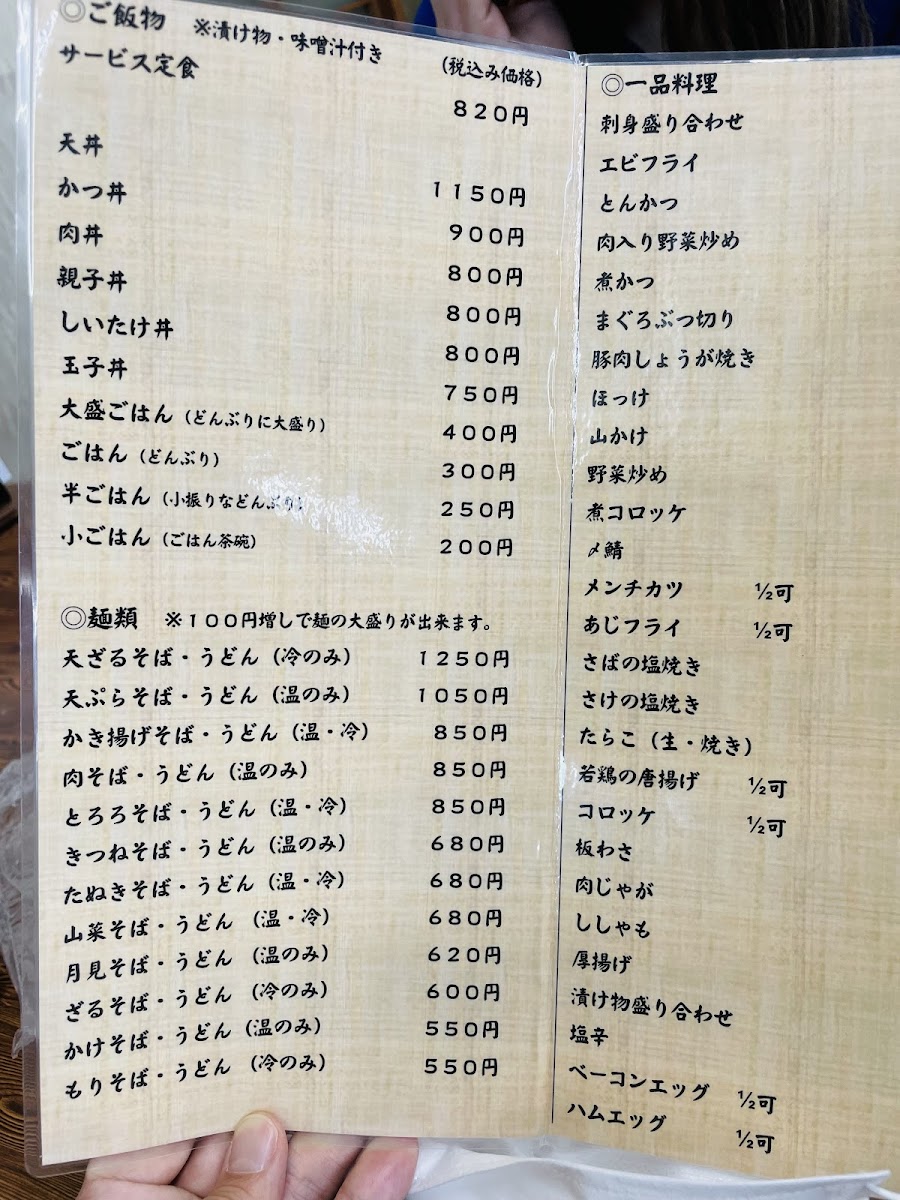 ◎ご飯物 ※漬け物・味噌汁付き
(税込み価格)
サービス定食 820円
天丼 1150円
かつ丼 900円
肉丼 800円
親子丼 800円
しいたけ丼 800円
玉子丼 750円
大盛ごはん(どんぶりに大盛り) 400円
ごはん(どんぶり) 300円
半ごはん(小振りなどんぶり) 250円
小ごはん(ごはん茶碗) 200円
◎麺類 ※100円増しで麺の大盛りが出来ます。
天ざるそば・うどん(冷のみ) 1250円
天ぷらそば・うどん(温のみ) 1050円
かき揚げそば・うどん(温・冷) 850円
肉そば・うどん(温のみ) 850円
とろろそば・うどん(温・冷) 850円
きつねそば・うどん(温のみ) 680円
たぬきそば・うどん(温・冷) 680円
山菜そば・うどん(温・冷) 680円
月見そば・うどん(温のみ) 620円
ざるそば・うどん(冷のみ) 600円
かけそば・うどん(温のみ) 550円
もりそば・うどん(冷のみ) 550円
◎一品料理
刺身盛り合わせ
エビフライ
とんかつ
肉入り野菜炒め
煮かつ
まぐろぶつ切り
豚肉しょうが焼き
ほっけ
山かけ
野菜炒め
煮コロッケ
〆鯖
メンチカツ ½可
あじフライ ½可
さばの塩焼き
さけの塩焼き
たらこ(生・焼き)
若鶏の唐揚げ ½可
コロッケ ½可
板わさ
肉じゃが
ししゃも
厚揚げ
漬け物盛り合わせ
塩辛
ベーコンエッグ ½可
ハムエッグ ½可